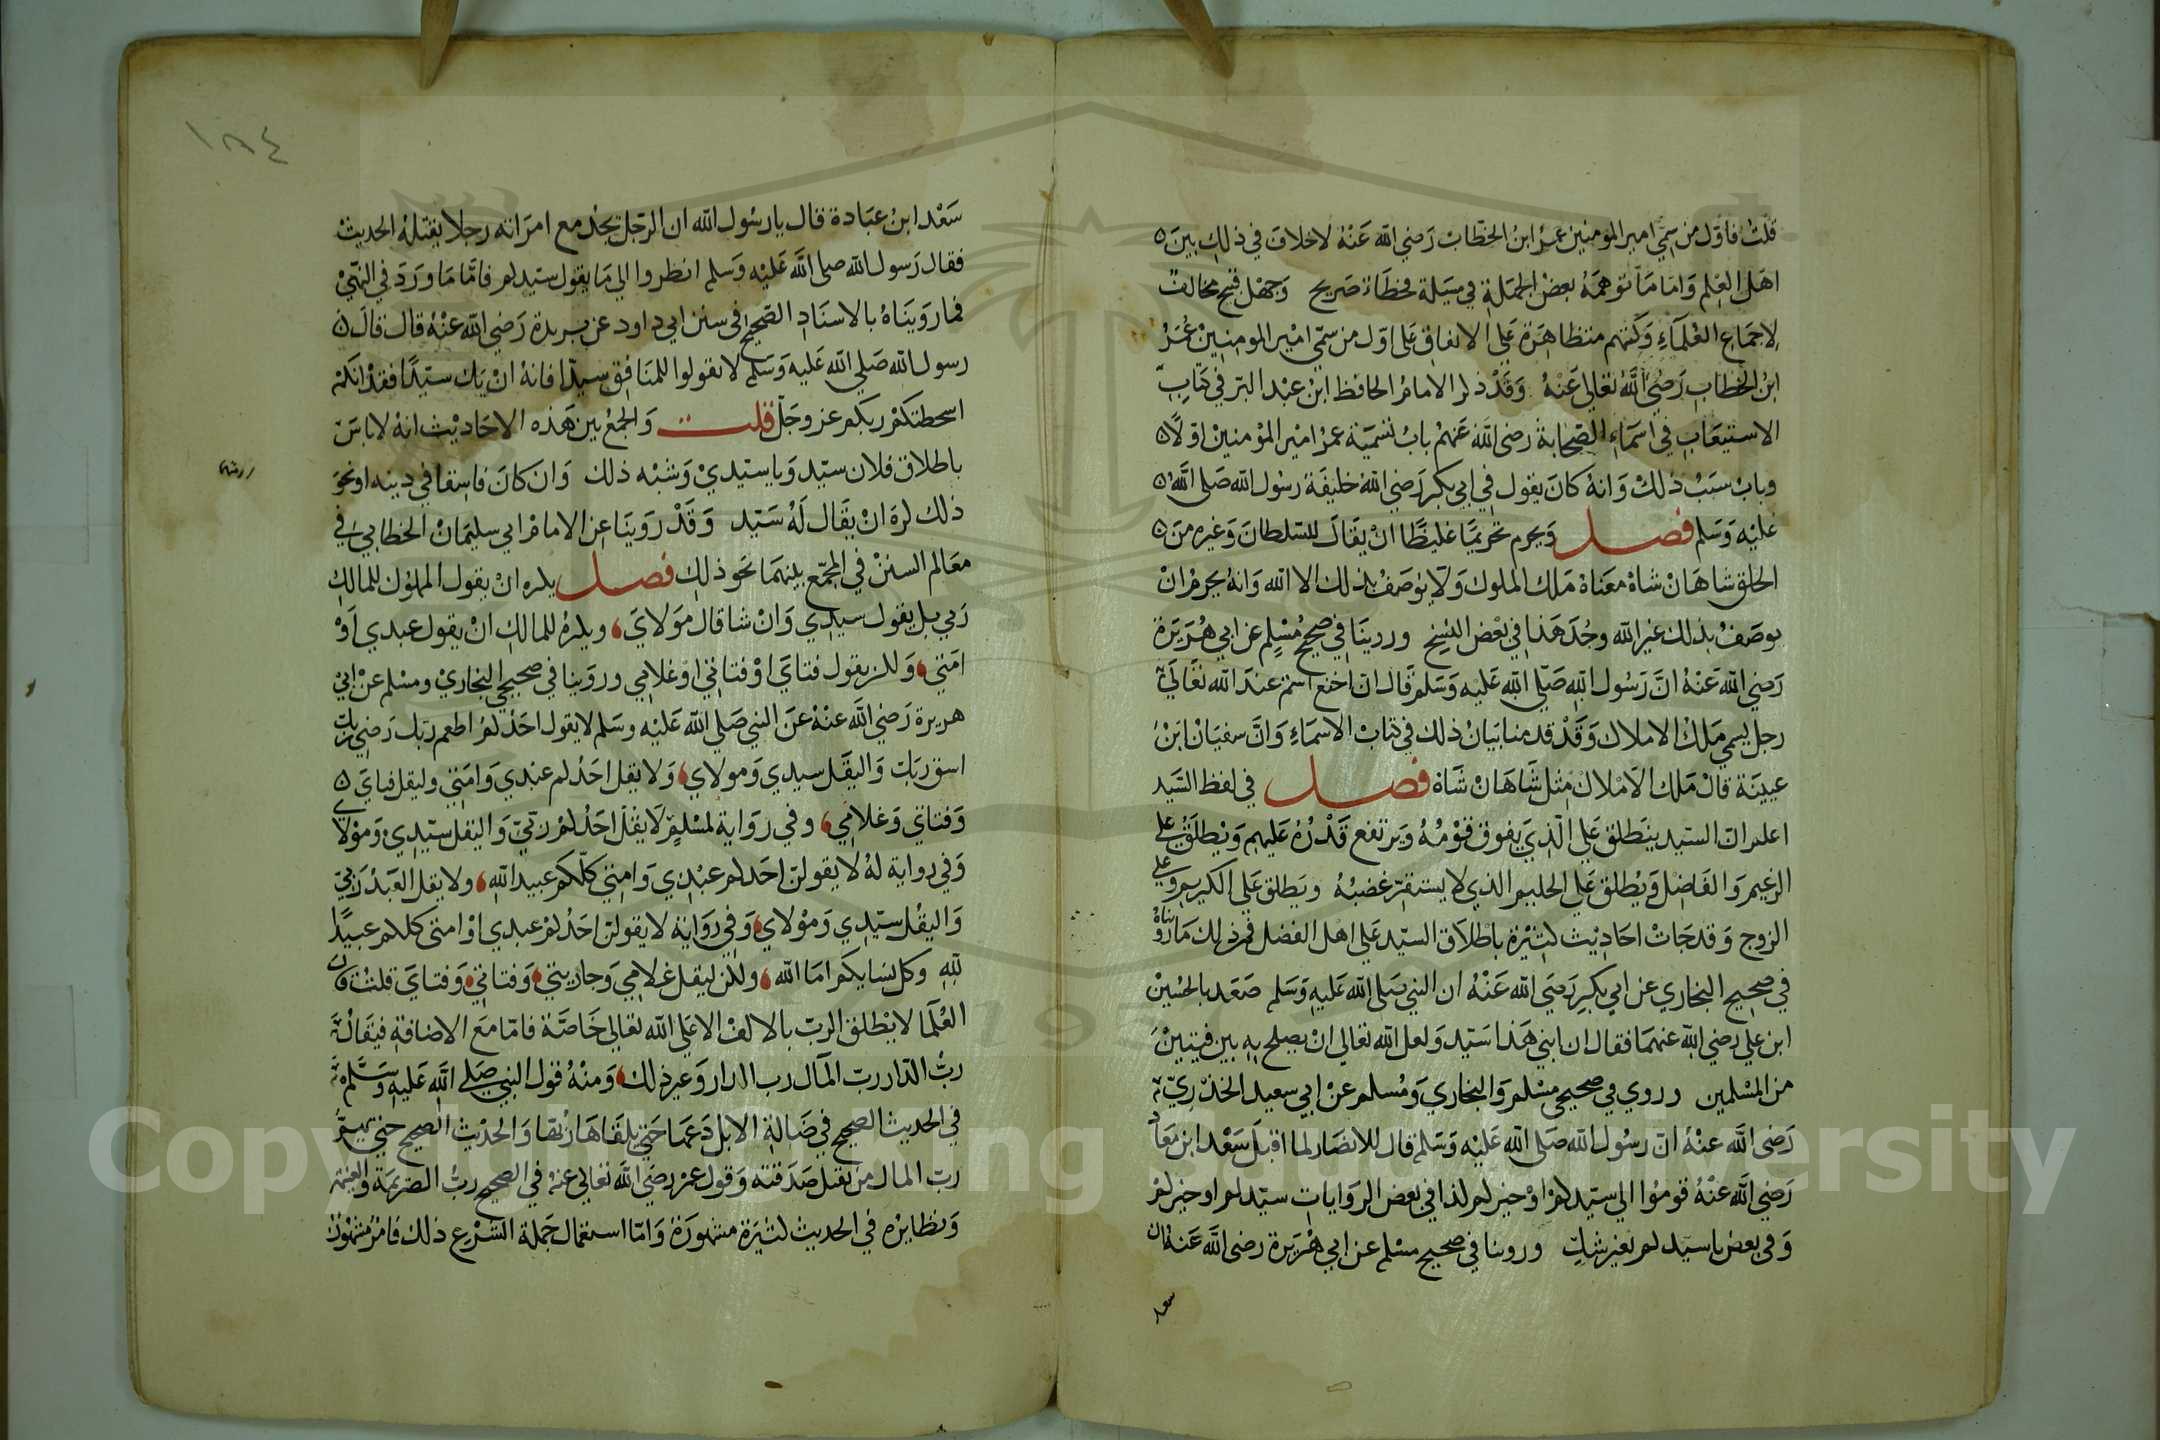 قلت فاول من سمي امير المومنين عمر ابن الخطاب رضي الله عنه لاخلاف في ذلك بين
اهل العلم واما ما توهمه بعض الجهلة في مسيلة فخطاء صريح وجهل قبيح مخالف
لاجماع العلماء وكتبهم متظاهرة على الاتفاق على اول من سمي امير المومنين عمر
ابن الخطاب رضي الله تعالى عنه وقد ذكر الامام الحافظ ابن عبد البر في كتاب
الاستيعاب في اسماء الصحابة رضى الله عنهم باب تسمية عمر امير المؤمنين اولا
وباب سبب ذلك وانه كان يقول في ابي بكر رضي الله خليفة رسول الله صلى الله
عليه وسلم فصل ويحرم تحريما غليظا ان يقال للسلطان وغيره من
الخلق شاهان شاه معناه ملك الملوك ولا يوصف بذلك الا الله وانه يحرم ان
يوصف بذلك غير الله وجد هذا في بعض النسخ وروينا في صحيح مسلم عن ابي هريرة
رضي الله عنه ان رسول الله صلى الله عليه وسلم قال ان اخنع اسم عند الله تعالى
رجل يسمي ملك الاملاك وقد قدمنا بيان ذلك في كتاب الاسماء وان سفيان ابن
عيينة قال ملك الاملاك مثل شاهان شاه فصل في لفظ السيد
اعلم ان السيد ينطلق على الذي يفوق قومه ويرتفع قدره عليهم ويطلق على
الزعيم والفاضل ويطلق على الحليم الذي لا يستفزه غضبه ويطلق على الكريم وعلى
الزوج وقد جات احاديث كثيرة باطلاق السيد على اهل الفضل فمن ذلك ما رويناه
في صحيح البخاري عن ابي بكر رضي الله عنه ان النبي صلى الله عليه وسلم صعد بالحسين
ابن علي رضي الله عنهما فقال ان ابني هذا سيد ولعل الله تعالى ان يصلح به بين فيتين
من المسلمين وروي في صحيحي مسلم والبخاري ومسلم عن ابي سعيد الخدري
رضى الله عنه ان رسول الله صلى الله عليه وسلم قال للانصار لما اقبل سعد ابن معاد
رضي الله عنه قوموا الي سيدكم او خيركم كذا في بعض الروايات سيدكم او خيركم
وفي بعض يا سيدكم بغير شك وروينا في صحيح مسلم عن ابي هريرة رضى الله عنه ان
سعد
١٨٤
سعد ابن عبادة قال يارسول الله ان الرجل يجد مع امراته رجلا يقتله الحديث
فقال رسول الله صلى الله عليه وسلم انظروا الي ما يقول سيدكم فاما ما ورد في النهي
فما رويناه بالاسناد الصحيح في سنن ابي داود عن بريدة رضي الله عنه قال قال
رسول الله صلى الله عليه وسلم لا تقولوا للمنافق سيد فانه ان يك سيدا فقد انكم
اسخطتكم ربكم عز وجل قلت والجمع بين هذه الاحاديث انه لا باس
باطلاق فلان سيد ويا سيدي وشبه ذلك وان كان فاسقا في دينه او نحو
ذلك كره ان يقال له سيد وقد روينا عن الامام ابي سليمان الخطابي في
معالم السنن في الجمع بينهما نحو ذلك فصل يكره ان يقول المملوك للمالك
ربي بل يقول سيدي وان شا قال مولاي ويكره للمالك ان يقول عبدي او
امتي ولكن يقول فتاي او فتاتي او غلامي وروينا في صحيحي البخاري ومسلم عن ابي
هريرة رضي الله عنه عن النبي صلى الله عليه وسلم لا يقول احدكم اطعم ربك رضي ربك
اسق ربك واليقل سيدي ومولاي ولا يقل احدكم عبدي وامتي وليقل فتاي
وفتاتي وغلامي وفي رواية لمسلم لا يقل احدكم ربي واليقل سيدي ومولاي
وفي رواية له لا يقولن احدكم عبدي وامتي كلكم عبيد الله ولا يقل العبد ربي
واليقل سيدي ومولاي وفي رواية لا يقولن احدكم عبدي او امتى كلكم عبيدا
لله وكل نسايكم اما الله ولكن ليقل غلامي وجاريتي وفتاتي وفتاي قلت قال
العلما لا يطلق الرب بالالف الا على الله تعالي خاصة فاما مع الاضافة فيقال
رب الدار رب المال رب الدار وغير ذلك ومنه قول النبي صلى الله عليه وسلم
في الحديث الصحيح في ضالة الابل دعها حتي يلقاها ربها والحديث الصحيح حتي يهم
رب المال من يقبل صدقته وقول عمر رضي الله تعالي عنه في الصحيح رب الصريمة والغنيمة
ونظايره في الحديث كثيرة مشهورة واما استعمال جملة الشرع ذلك فامر مشهور
Copyright © King Saud University
1957